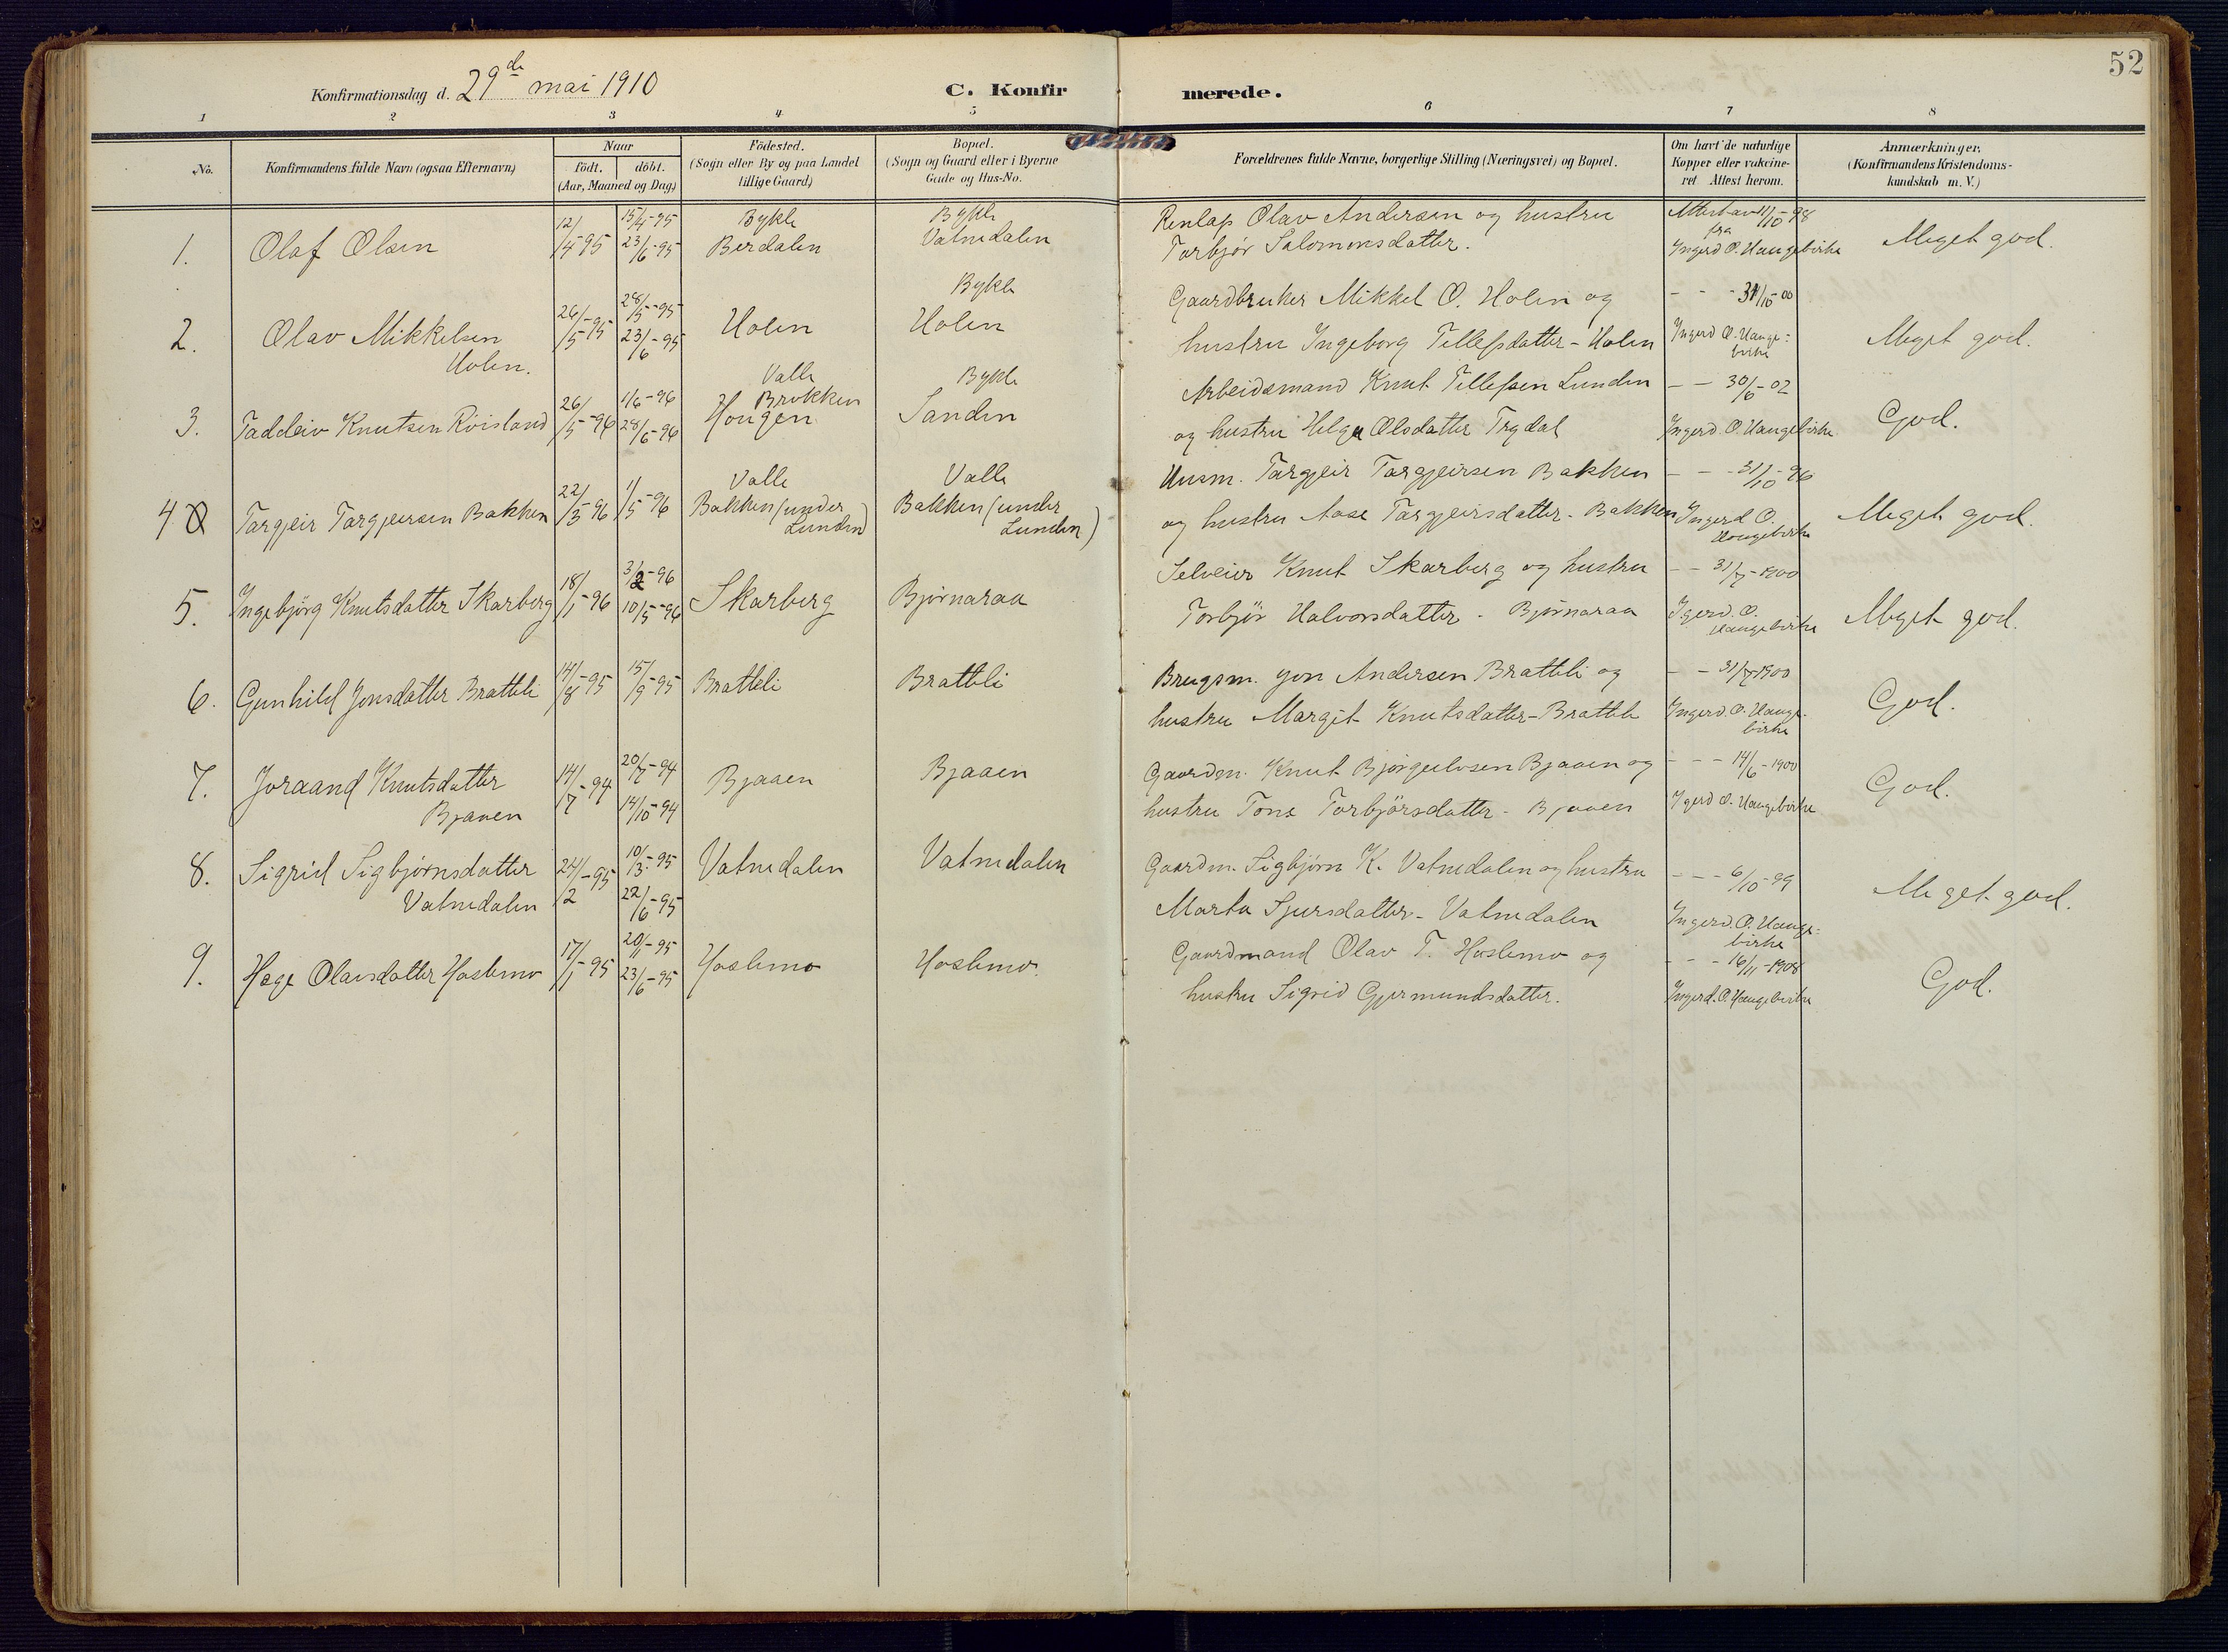 52
Konfirmationsdag d. 29de mai 1910
C. Konfirmerede.
1 2 3 4 5 6 7 8
No.
Konfirmandens fulde Navn (ogsaa Efternavn)
Naar
födt. döbt.
(Aar, Maaned og Dag)
Födested.
(Sogn eller By og paa Landet
tillige Gaard)
Bopæl.
(Sogn og Gaard eller i Byerne
Gade og Hus-No.
Forældrenes fulde Navne, borgerlige Stilling (Næringsvei) og Bopæl.
Om havt de naturlige
Kopper eller vakcine-
ret Attest herom.
Anmærkninger.
(Konfirmandens Kristendoms-
kundskab m. V.)
1. Olaf Olsen 12/4-95 15/4-95 23/6-95
Bykle
Berdalen
Bykle
Vatnedalen
Olav Andersen og hustru
Torbjør Salomonsdatter.
Attest av 11/10-98
fra
Ingerd O. Haugebirke
Meget god.
2. Olav Mikkelsen
Holen.
26/5-95 28/5-95 23/6-95
Holen
Bykle
Holen
Gaardbruker Mikkel O. Holen og
hustru Ingeborg Tellefsdatter - Holen
- - - 31/10-00
Ingerd O. Hauge-
birke
Meget god.
3. Taddeiv Knutsen Röisland 26/5-96 1/6-96 28/6-96
Valle
Brokken
Hougen
Bykle
Sanden
Arbeidsmand Knut Tellefsen Lunden
og hustru Helga Olsdatter Trydal
- - 30/6-02
Ingerd. O. Haugebirke
God.
4 Targjeir Targjeirsen Bakken 22/3-96 1/5-96
Valle
Bakken (under
Lunden)
Valle
Bakken (under
Lunden)
Husm. Targjeir Targjeirsen Bakken
og hustru Aase Targjeirsdatter - Bakken
- - - 31/10-96
Ingerd O.
Haugebirke
Meget god.
5. Ingebjörg Knutsdatter Skarberg 18/1-96 3/2-96 10/5-96
Skarberg
Bjørnaraa
Selveier Knut Skarberg og hustru
Torbjör Halvorsdatter - Bjørnaraa
- - 31/7-1900
Igerd. O.
Haugebirke
Meget god.
6. Gunhild Jonsdatter Bratteli 14/8-95 15/9-95
Bratteli
Bratteli
Brugsm. Jon Andersen Bratteli og
hustru Margit Knutsdatter - Bratteli
- - 31/7-1900
Ingerd. O. Hauge-
birke
God.
7. Joraand Knutsdatter
Bjaaen
14/7-94 20/7-94 14/10-94
Bjaaen
Bjaaen
Gaardm. Knut Bjørgulvsen Bjaaen og
hustru Tone Torbjörsdatter - Bjaaen
- - - 14/6-1900
Igerd O. Haugebirke
God.
8. Sigrid Sigbjørnsdatter
Vatnedalen
24/2-95 10/3-95 22/6-95
Vatnedalen
Vatnedalen
Gaardm. Sigbjørn K. Vatnedalen og hustru
Marta Sjursdatter - Vatnedalen
- - - 6/10-99
Ingerd. O. Hauge-
birke
Meget god.
9. Hæge Olavsdatter Hoslemo 17/1-95 20/1-95 23/6-95
Hoslemo
Hoslemo.
Gaardmand Olav T. Hoslemo og
hustru Sigrid Gjermundsdatter.
- - - 16/11-1908
Ingerd. O. Haugebirke
God.